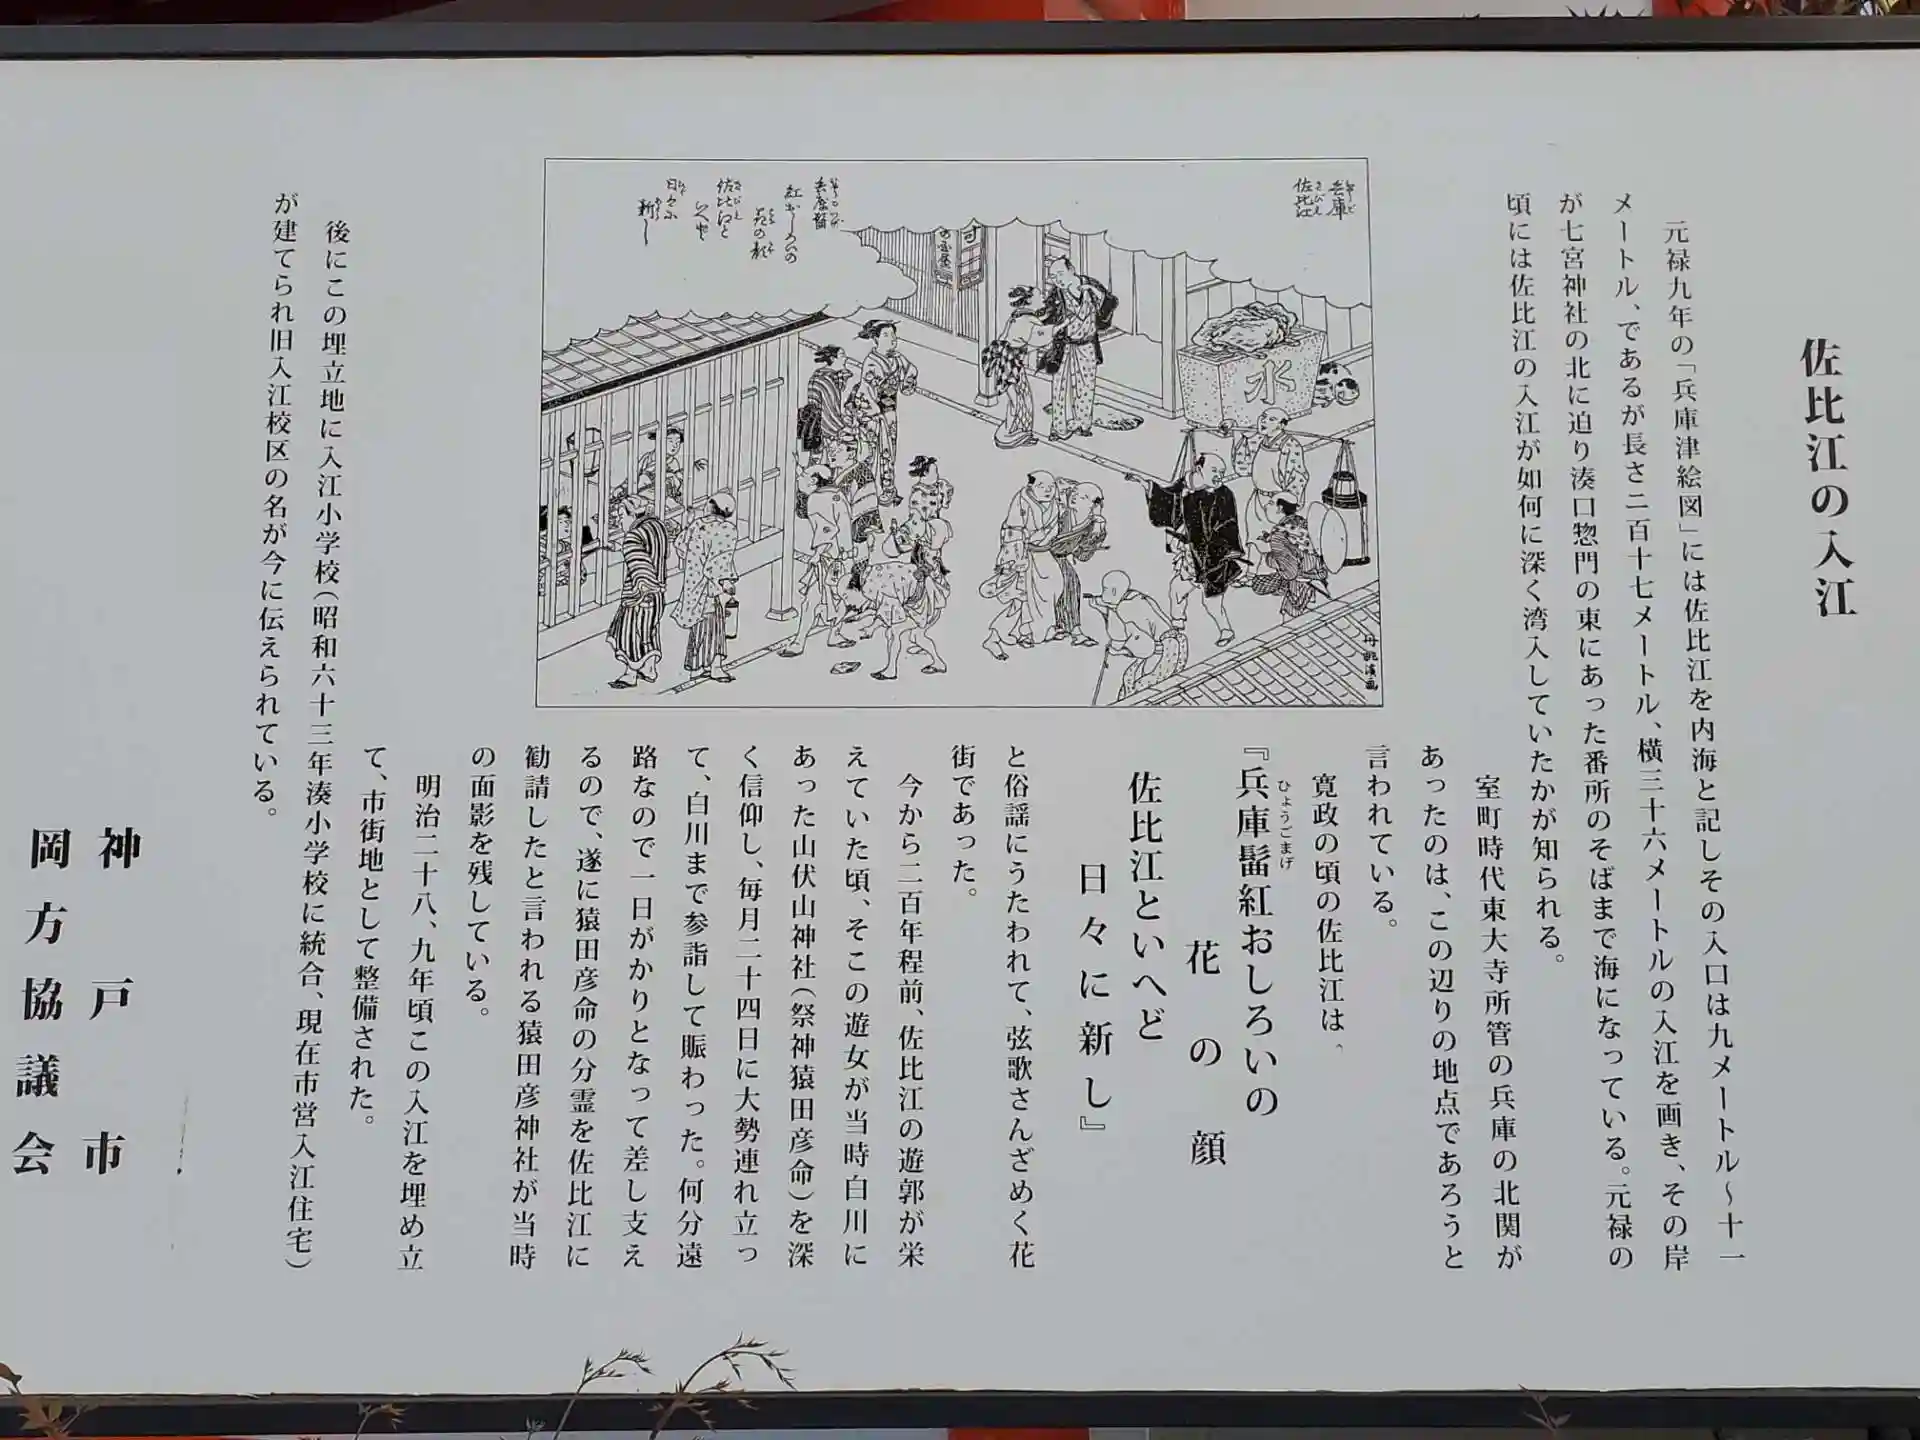 佐比江の入江
元禄九年の「兵庫津絵図」には佐比江を内海と記しその入口は九メートル〜十一
メートル、であるが長さ二百十七メートル、横三十六メートルの入江を画き、その岸
が七宮神社の北に迫り湊口惣門の東にあった番所のそばまで海になっている。元禄の
頃には佐比江の入江が如何に深く湾入していたかが知られる。
室町時代東大寺所管の兵庫の北関が
あったのは、この辺りの地点であろうと
言われている。
寛政の頃の佐比江は、
『兵庫髷紅おしろいの
ひょうごまげ
花の顔
佐比江といへど
日々に新し』
と俗謡にうたわれて、弦歌さんざめく花
街であった。
今から二百年程前、佐比江の遊郭が栄
えていた頃、そこの遊女が当時白川に
あった山伏山神社(祭神猿田彦命)を深
く信仰し、毎月二十四日に大勢連れ立っ
て、白川まで参詣して賑わった。何分遠
路なので一日がかりとなって差し支え
るので、遂に猿田彦命の分霊を佐比江に
勧請したと言われる猿田彦神社が当時
の面影を残している。
明治二十八、九年頃この入江を埋め立
て、市街地として整備された。
後にこの埋立地に入江小学校(昭和六十三年湊小学校に統合、現在市営入江住宅)
が建てられ旧入江校区の名が今に伝えられている。
神戸市
岡方協議会
兵庫
佐比江
兵庫髷
紅おしろいの
花の顔
佐比江と
いへど
日々に
新し
水